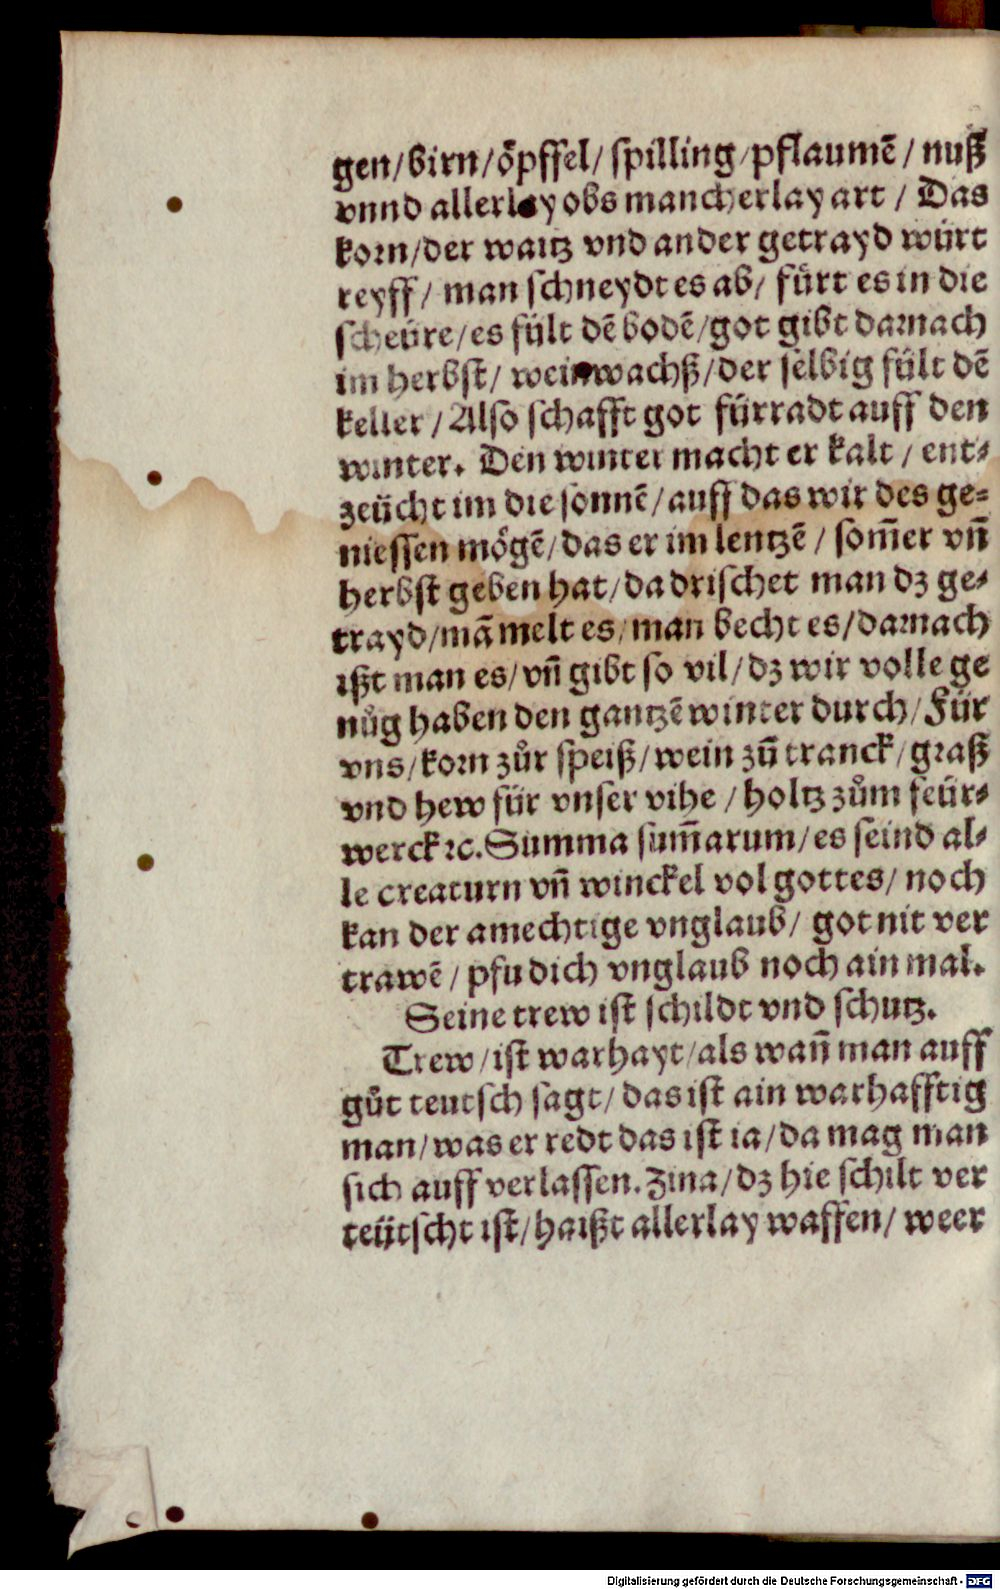 gen/birn/öpffel/spilling/pflaumē/nuß
vnnd allerlay obs mancherlay art/Das
korn/der waitz vnd ander getrayd würt
reyff/man schneydt es ab/fürt es in die
scheüre/es fült dē bodē/got gibt darnach
im herbst/weinwachß/der selbig fült dē
keller/Also schafft got fürradt auff den
winter. Den winter macht er kalt/ent-
zeücht im die sonnē/auff das wir des ge-
niessen mögē/das er im lentzē/som̄er vn̄
herbst geben hat/da drischet man dz ge-
trayd/mā melt es/man becht es/darnach
ißt man es/vn̄ gibt so vil/dz wir volle ge
nůg haben den gantzē winter durch/Für
vns/korn zůr speiß/wein zū tranck/graß
vnd hew für vnser vihe/holtz zům feür-
werck ꝛc. Summa sum̄arum/es seind al-
le creaturn vn̄ winckel vol gottes/noch
kan der amechtige vnglaub/got nit ver
trawē/pfu dich vnglaub noch ain mal.
Seine trew ist schildt vnd schutz.
Trew/ist warhayt/als wan̄ man auff
gůt teutsch sagt/das ist ain warhafftig
man/was er redt das ist ia/da mag man
sich auff verlassen. Zina/dz hie schilt ver
teütscht ist/haißt allerlay waffen/weer
Digitalisierung gefördert durch die Deutsche Forschungsgemeinschaft - DFG